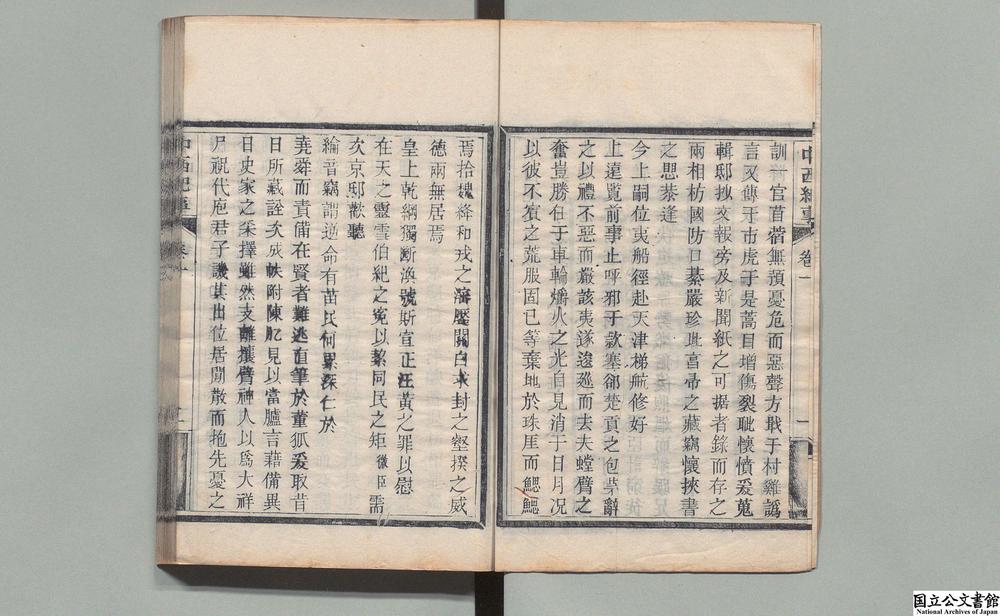 中西紀事 卷一 一
訓術官苜蓿無預憂危而惡聲方戢于村雞譌
言又傳于市虎于是蒿目增傷裂眦懷憤爰蒐
輯邸抄文報旁及新聞紙之可據者錄而存之
兩相枋國防口綦嚴珍此富帚之藏竊懷挾書
之思恭逢
今上嗣位夷船徑赴天津梯航修好
上遠覽前事止呼邪于款塞卻楚貢之包茅辭
之以禮不惡而嚴該夷遂逡巡而去夫螳臂之
奮豈勝任于車輪爝火之光自見消于日月况
以彼不賓之荒服固已等棄地於珠厓而鰓鰓
焉拾魏絳和戎之瀋壓關白求封之壑揆之威
德兩無居焉
皇上乾綱獨斷渙號斯宣正汪黃之罪以慰
在天之靈雪伯紀之冤以絜同民之矩微臣需
次京邸歡聽
綸音竊謂逆命有苗民何累深仁於
堯舜而責備在賢者難逃直筆於董狐爰取昔
日所藏詮次成帙附陳肊見以當臚言藉備異
日史家之采擇雖然支離攘臂神人以爲大祥
尸祝代庖君子譏其出位居閒散而抱先憂之
中西紀事
国立公文書館
National Archives of Japan